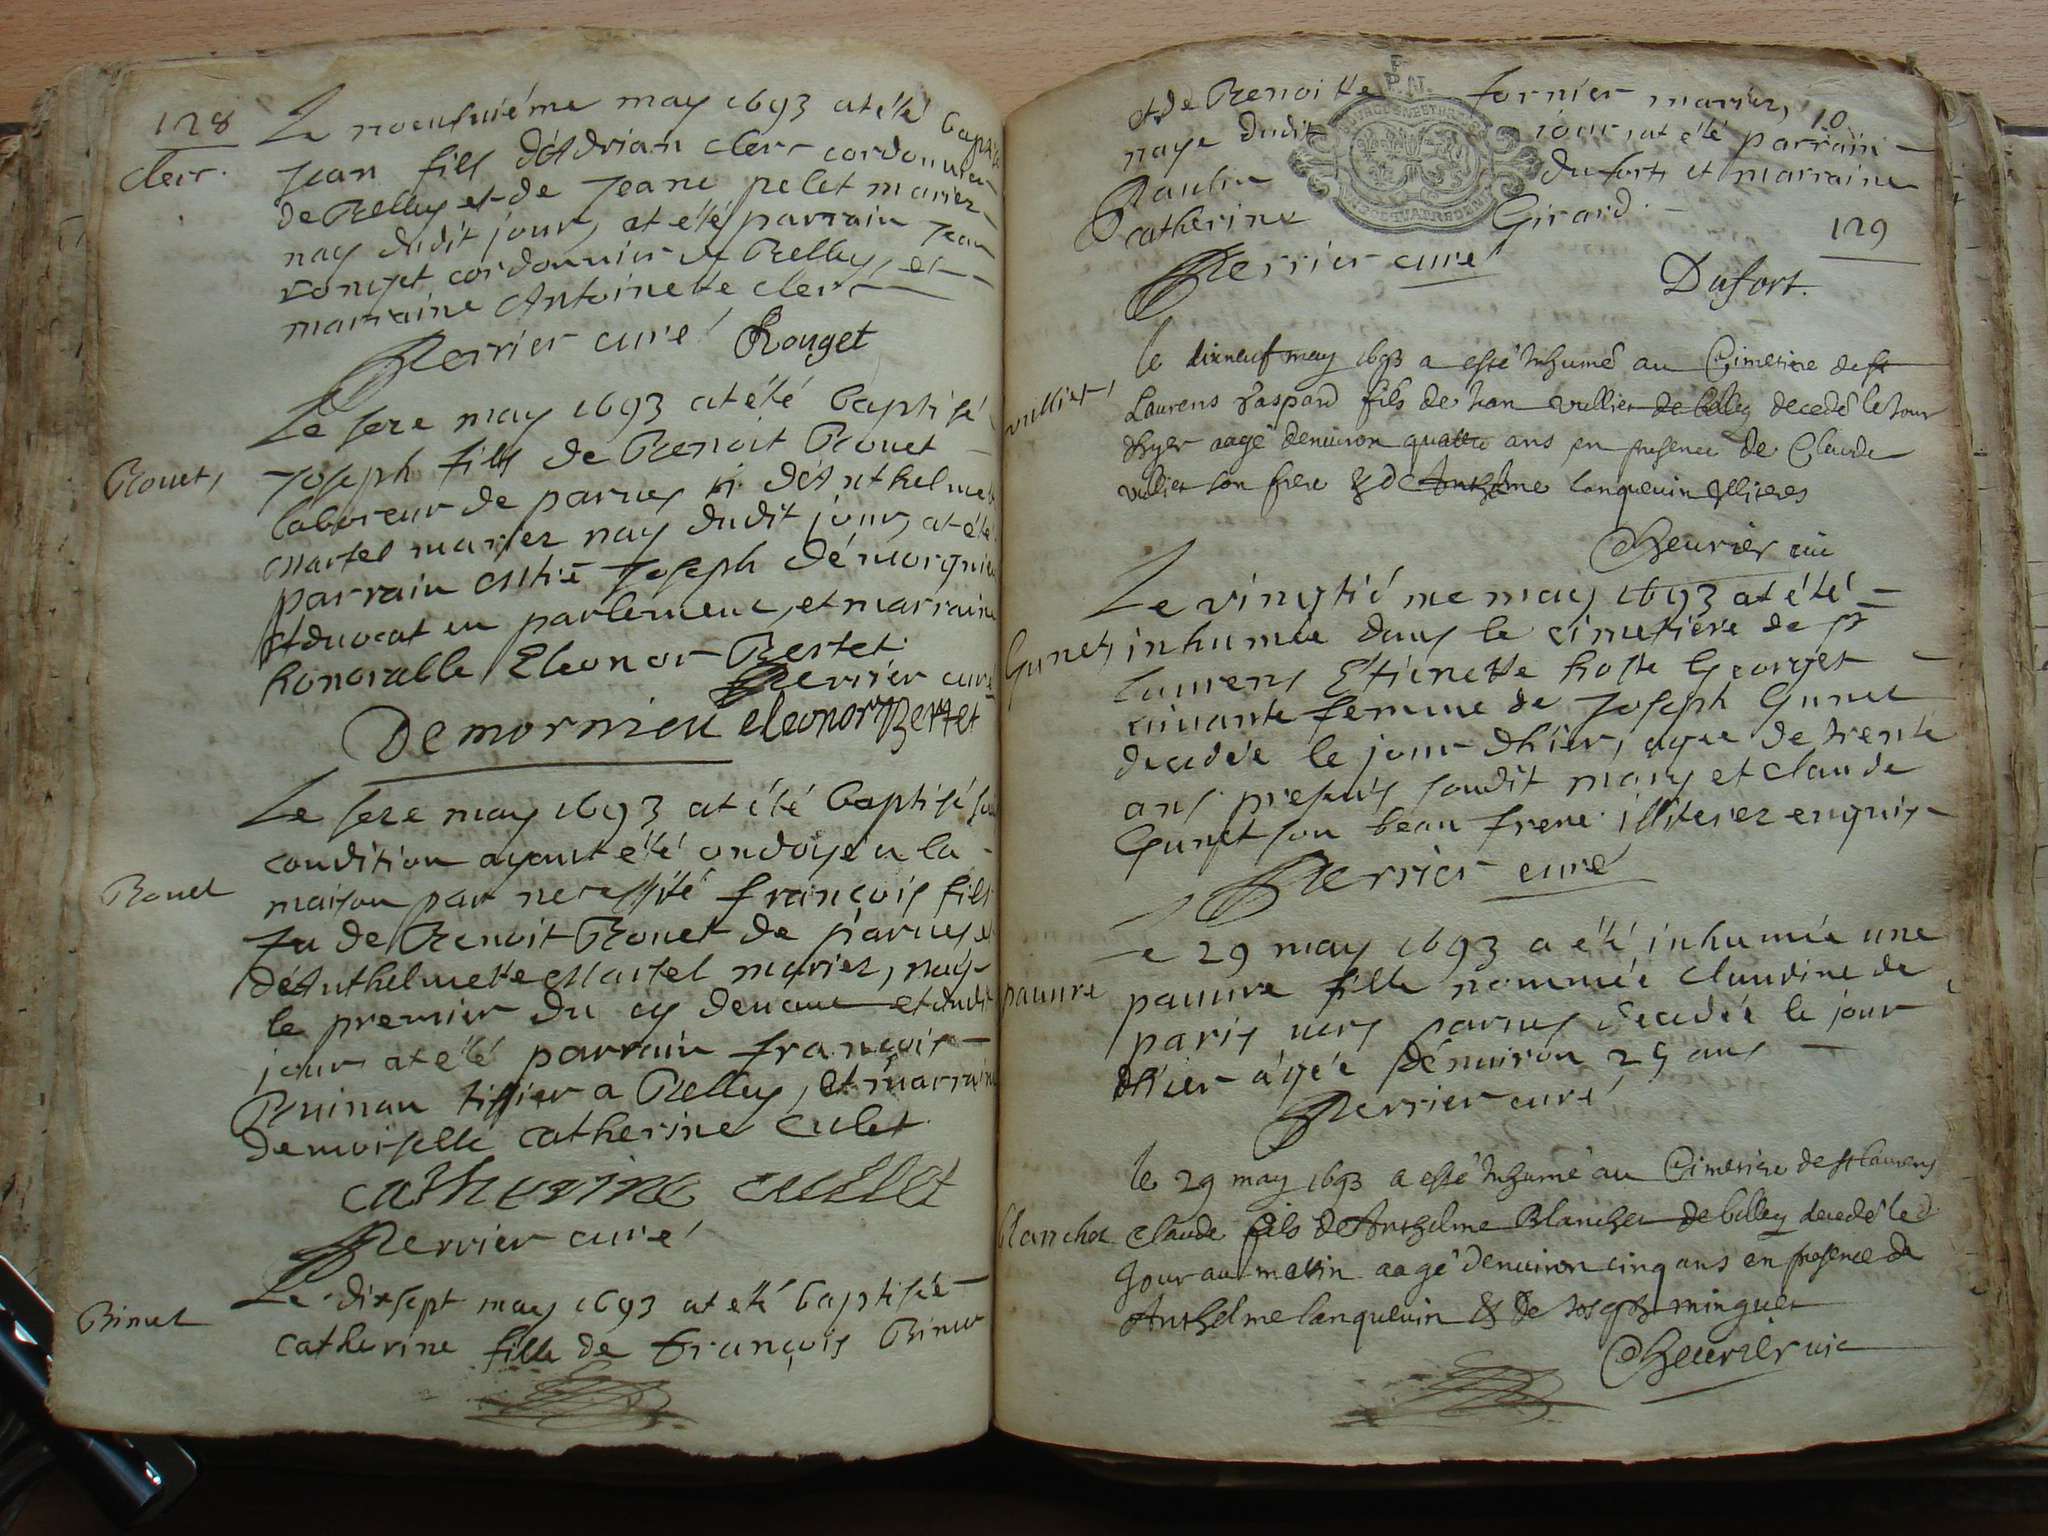 128
Le noeufuiéme may 1693 at été baptisé
Clerc.
Jean fils d'Adrian Clerc cordonnier
de Belley et de Jeane pelet mariez
nay dudit jour, at été parrain Jean
cordonnier de Belley, et
marraine Antoinette Clerc
Perrier curé Rouget
Le seze may 1693 at été baptisé
Bouet,
Joseph fils de Benoit Bouet
laboreur de parues et d'Anthelmette
Martel mariez nay dudit jour, at été
parrain Joseph démorgnieu
Advocat en parlement, et marraine
honorable Eleonor Bertet
Perrier curé
Demornieu eleonor Bertet
Le seze may 1693 at été baptisé sous
condition ayant été ondoyé a la
Bouet
maison par necessité françois fils
feu de Benoit Bouet de parues et
d'Anthelmette Martel mariez, nay
le premier du cy deuant et dudit
jour at été parrain françois
tissier a Belley, et marraine
demoiselle Catherine Culet
catherine cullet
Perrier curé
Le dixsept may 1693 at eté baptisée
Binet
Catherine fille de François Binet
et de Benoitte fornier mariez, 10
naye dudit jour, at été parrain
Paulin dufort et marraine
Catherine Girard
129
Perrier curé
Dufort.
le dixneuf may 1693 a esté Inhumé au Cimetiere de st
vullier,
Laurens Gaspard fils de Jean vullier de belley decedé le Jour
d'hyer aagé denuiron quattre ans en presence de Claude
vullier son frere & de Anthelme Lanqueuin Illiteres
Cheurier vic
Le vingtié me may 1693 at été
Gunet,
inhumée dans le cimetiere de St
Laurens Etienette hoste Georget
uiuante femme de Joseph Gunet
decedée le jour d'hier, agee de trente
ans presens soudit mary et claude
Gunet son beau frere illiterez enquis
Perrier curé
Le 29 may 1693 a été inhumée une
pauure
pauure fille nommée claudine de
paris uers parues decedée le jour
d'hier agée dénuiron 25 ans
Perrier curé
le 29 may 1693 a esté Inhumé au Cimetiere de st laurens
blanchet
Claude fils de Anthelme Blanchet de belley decedé led
Jour au matin aagé denuiron cinq ans en presence de
Anthelme Lanqueuin & de Joseph minguet
Cheurier vic